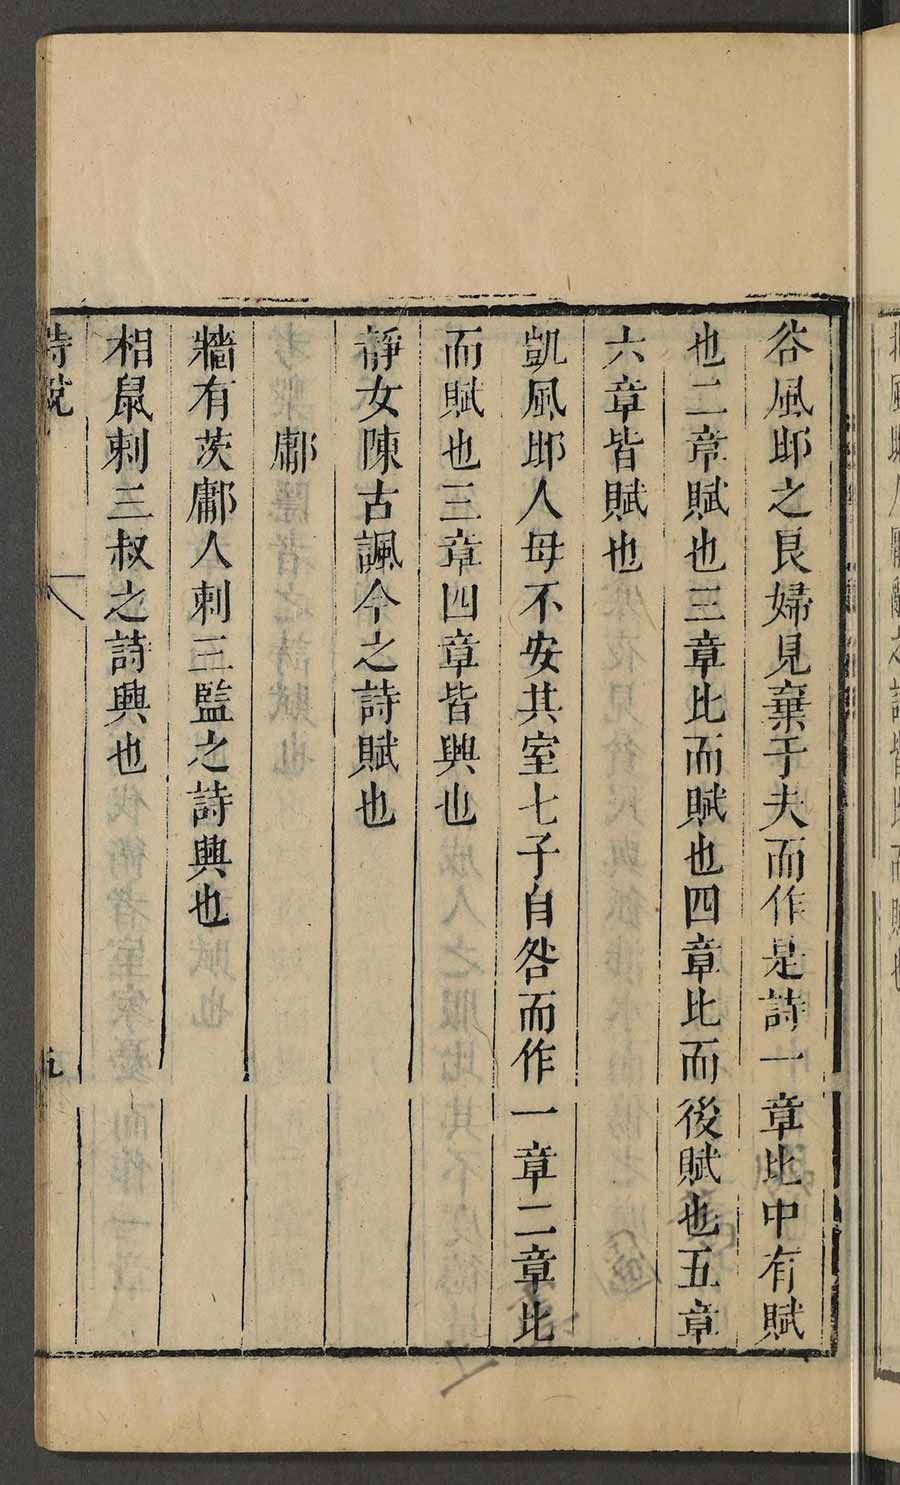 谷風邶之良婦見棄于夫而作是詩一章比中有賦
也二章賦也三章比而賦也四章比而後賦也五章
六章皆賦也
凱風邶人母不安其室七子自咎而作一章二章比
而賦也三章四章皆興也
靜女陳古諷今之詩賦也
鄘
牆有茨鄘人刺三監之詩興也
相鼠刺三叔之詩興也
詩說